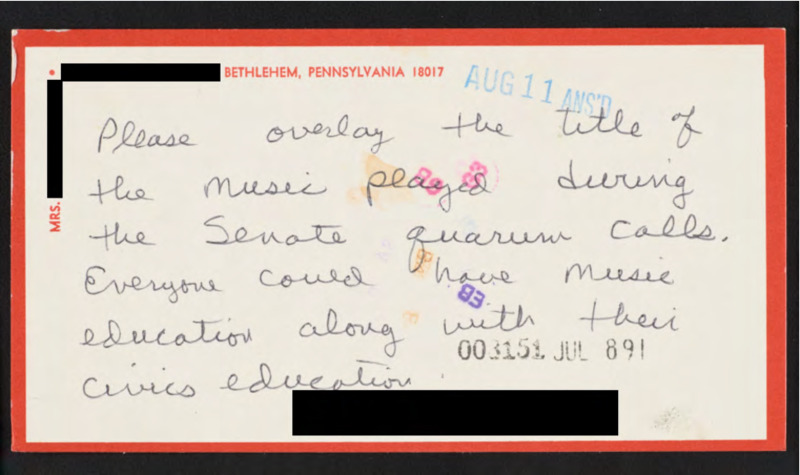 BETHLEHEM, PENNSYLVANIA 18017
AUG 11 ANS'D
MRS.
Please overlay the title of
the music played during
the Senate quarum calls.
Everyone could have music
education along with their
civics education.
003151 JUL 891